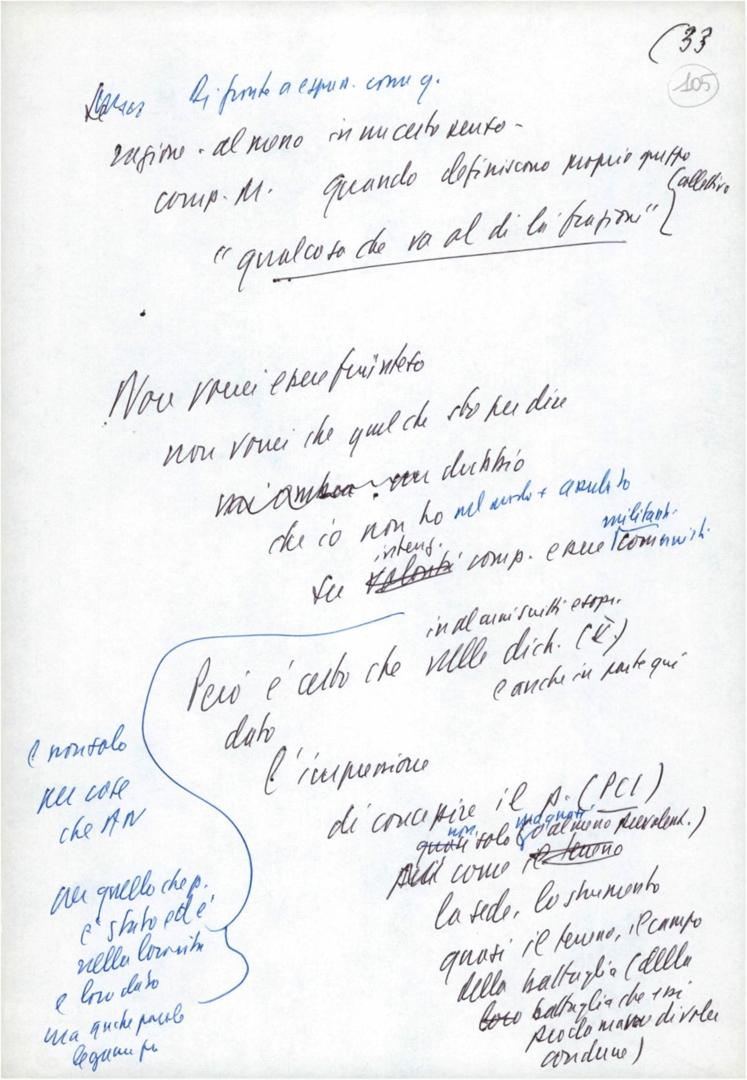 (33
105
Di fronte a espr. come q.
ragione - almeno in un certo senso -
comp. M. quando definiscono proprio questo
collettivo
"qualcosa che va al di là frazioni"
Non vorrei essere frainteso
non vorrei che quel che sto per dire
dubbio
che io non ho nel modo + assoluto
intenz. militanti
su volontà comp. essere comunisti
in alcuni scritti e espr.
Però è certo che nelle dich. (è)
e anche in parte qui
dato
l'impressione
di concepire il p. (PCI)
non
quasi solo (o almeno prevalent.)
più come il terreno
la sede, lo strumento
quasi il terreno, il campo
della battaglia (della
loro battaglia che essi
proclamano di voler
condurre)
e non solo
per cose
che AN
per quello che p.
è stato ed è
nella loro vita
e loro dato
ma anche
legame